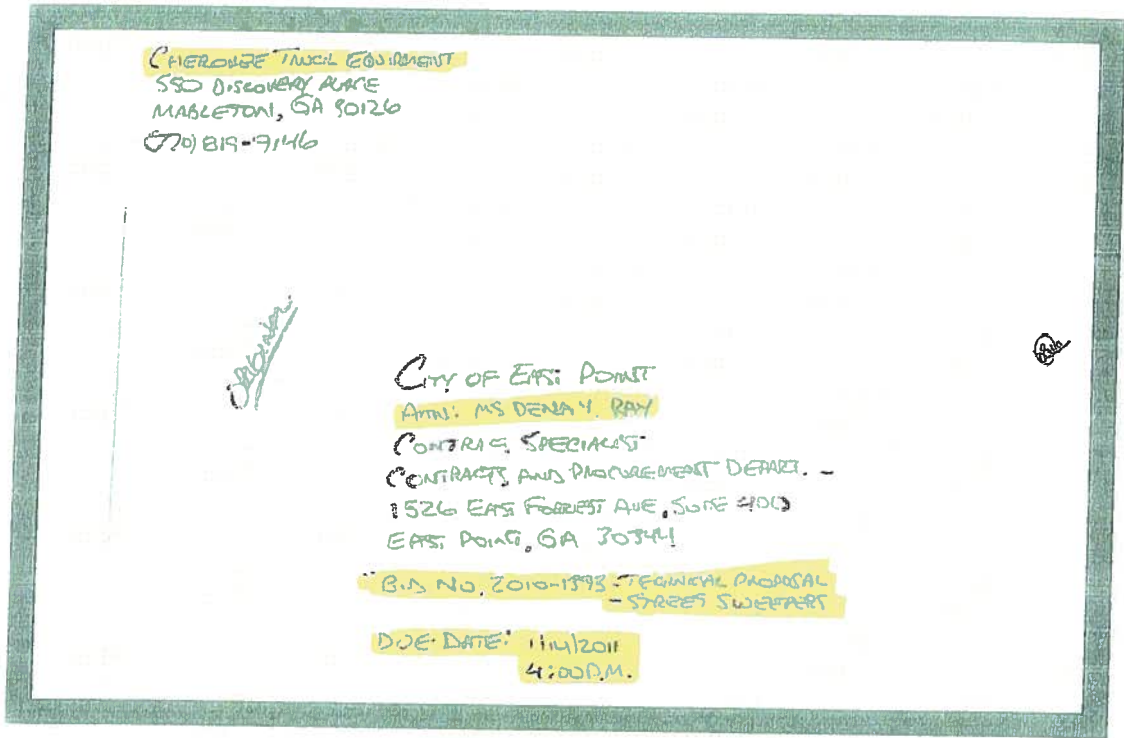 CHEROKEE TRUCK EQUIPMENT
550 DISCOVERY PLACE
MABLETON, GA 30126
(770) 819-9146
Original
CITY OF EAST POINT
ATTN: MS DENA Y. RAY
CONTRACT SPECIALIST
CONTRACTS AND PROCUREMENT DEPART. -
1526 EAST FORREST AVE, SUITE 400
EAST POINT, GA 30344
BID NO. 2010-1393 - TECHNICAL PROPOSAL
- STREET SWEEPERS
DUE DATE: 1/14/2011
4:00 P.M.